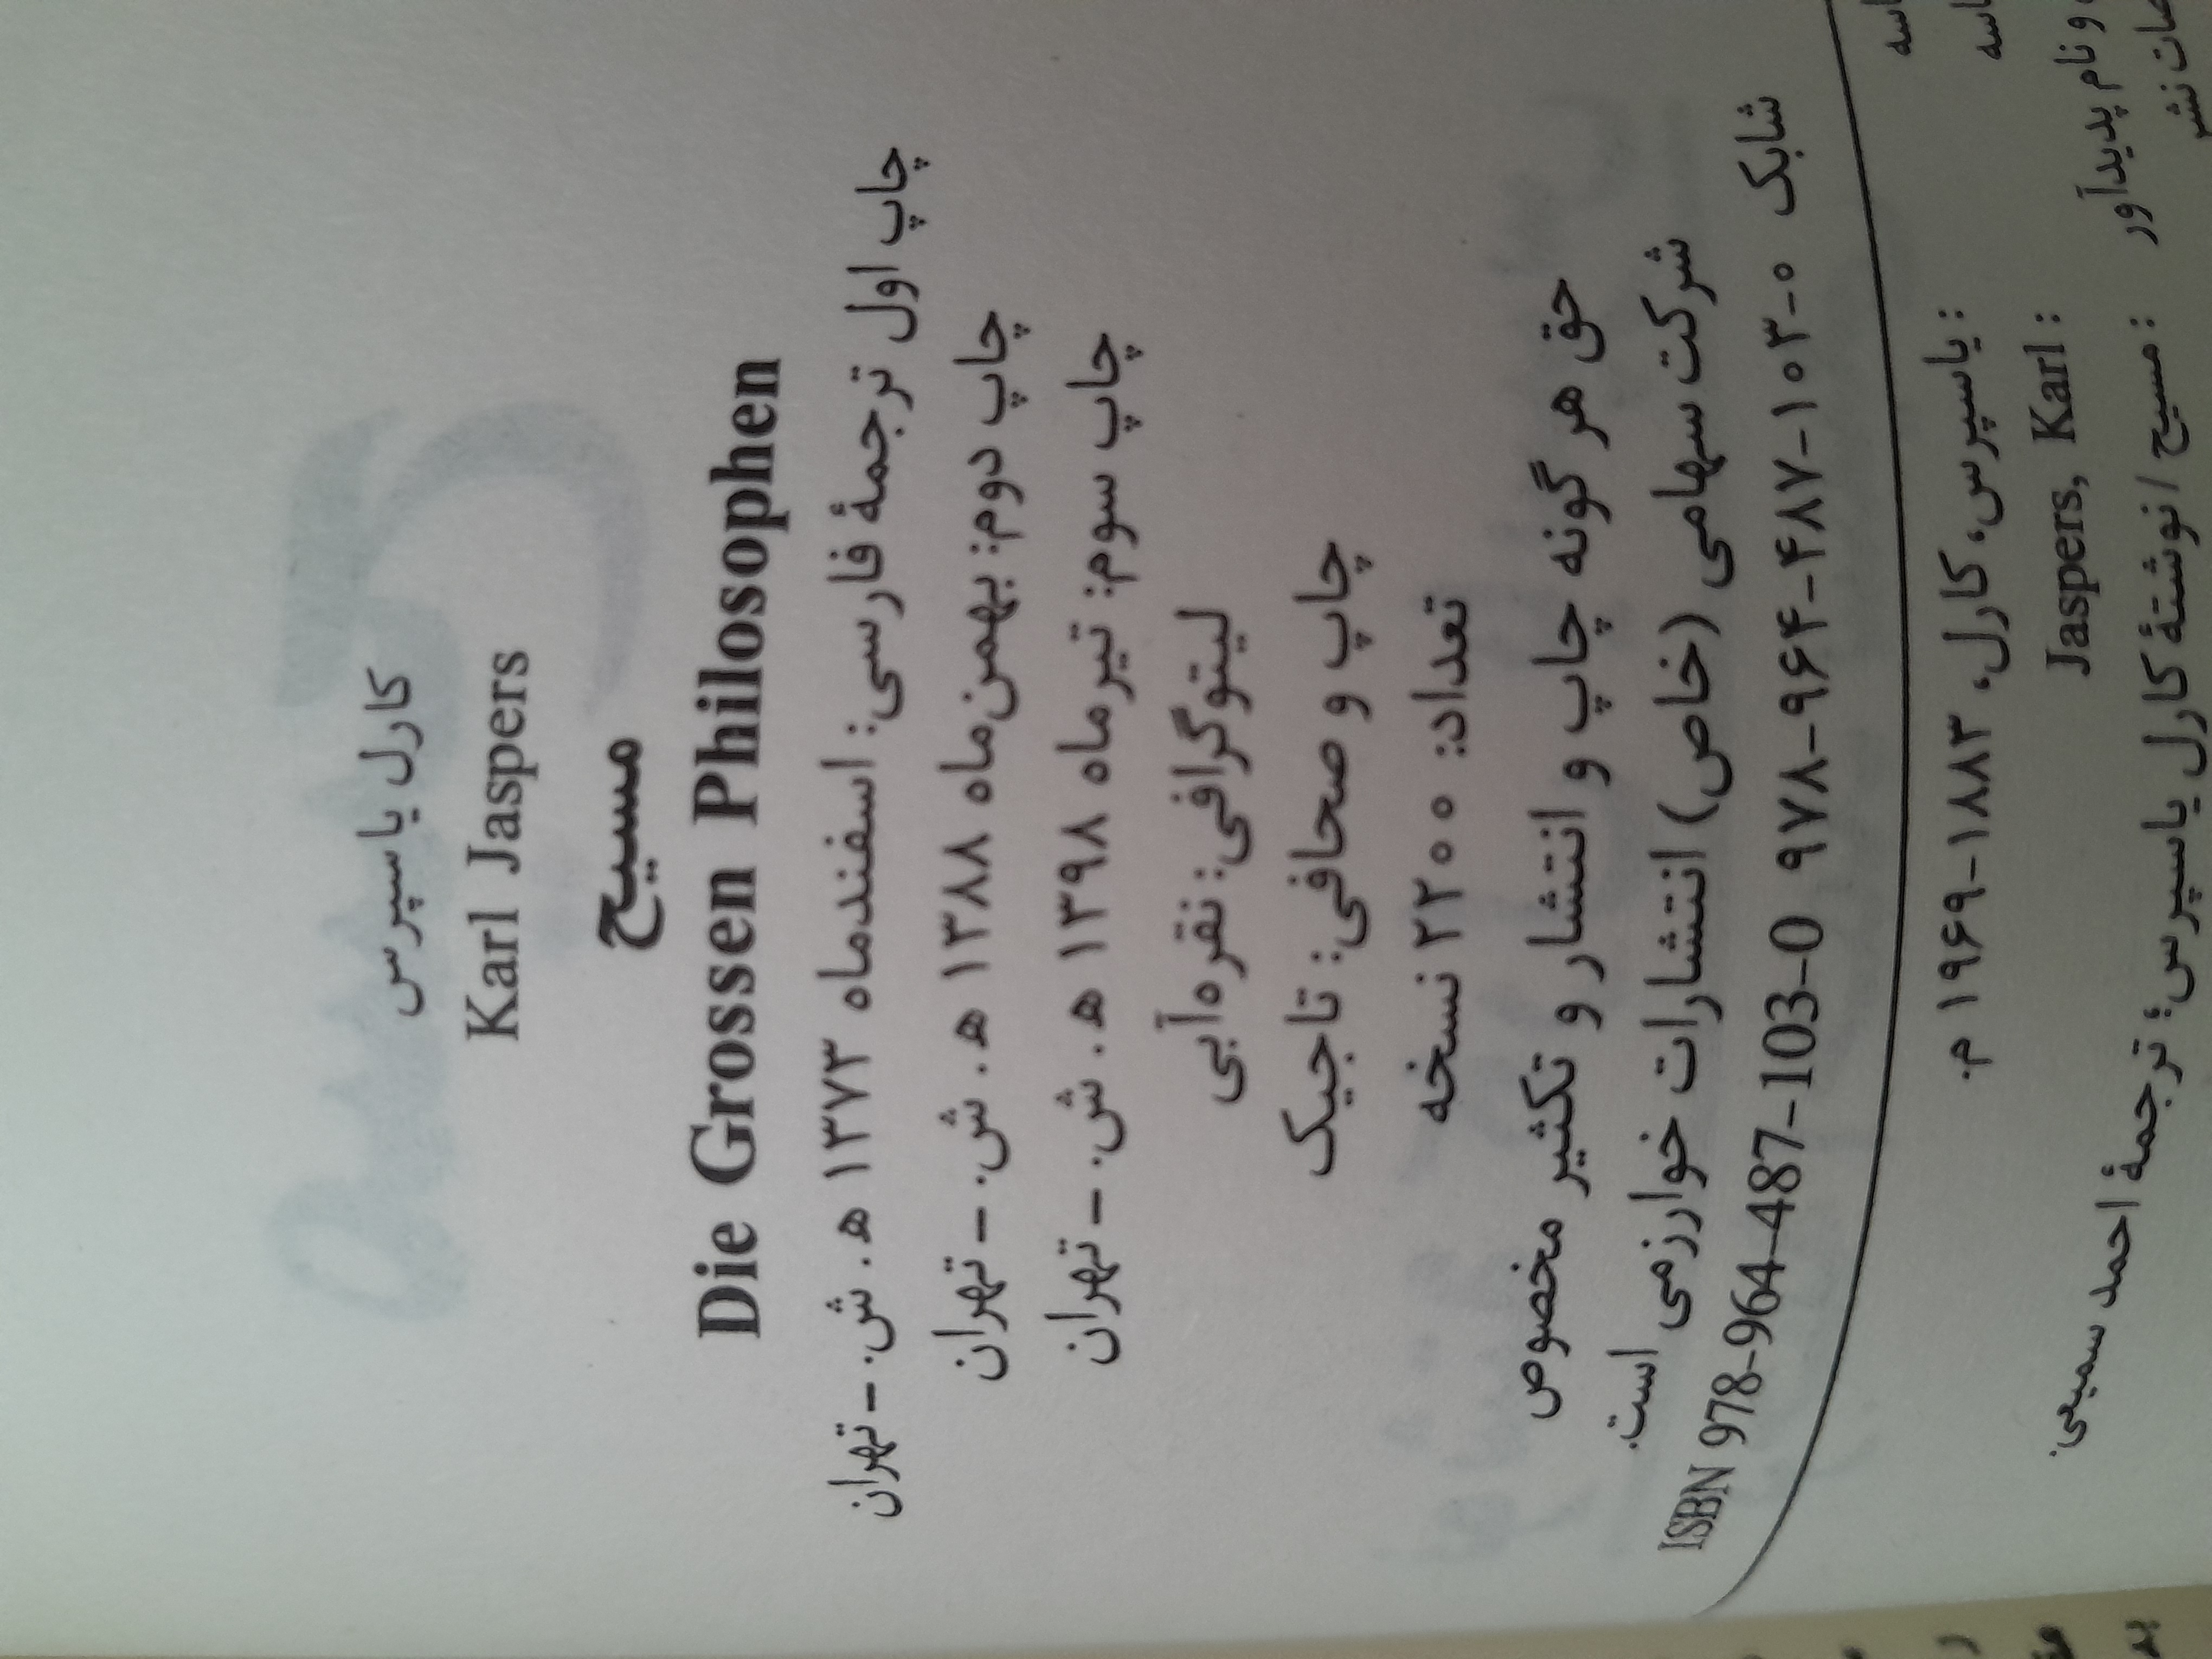 کارل یاسپرس
Karl Jaspers
مسیح
Die Grossen Philosophen
چاپ اول ترجمهٔ فارسی: اسفندماه ۱۳۷۳ ه‍. ش. – تهران
چاپ دوم: بهمن‌ماه ۱۳۸۸ ه‍. ش. – تهران
چاپ سوم: تیرماه ۱۳۹۸ ه‍. ش. – تهران
لیتوگرافی: نقره‌آبی
چاپ و صحافی: تاجیک
تعداد: ۲۲۰۰ نسخه
حق هر گونه چاپ و انتشار و تکثیر مخصوص
شرکت سهامی (خاص) انتشارات خوارزمی است.
شابک ۰-۱۰۳-۴۸۷-۹۶۴-۹۷۸ ISBN 978-964-487-103-0
: یاسپرس، کارل، ۱۸۸۳-۱۹۶۹ م.
Jaspers, Karl :
و نام پدیدآور : مسیح / نوشتهٔ کارل یاسپرس؛ ترجمهٔ احمد سمیعی.